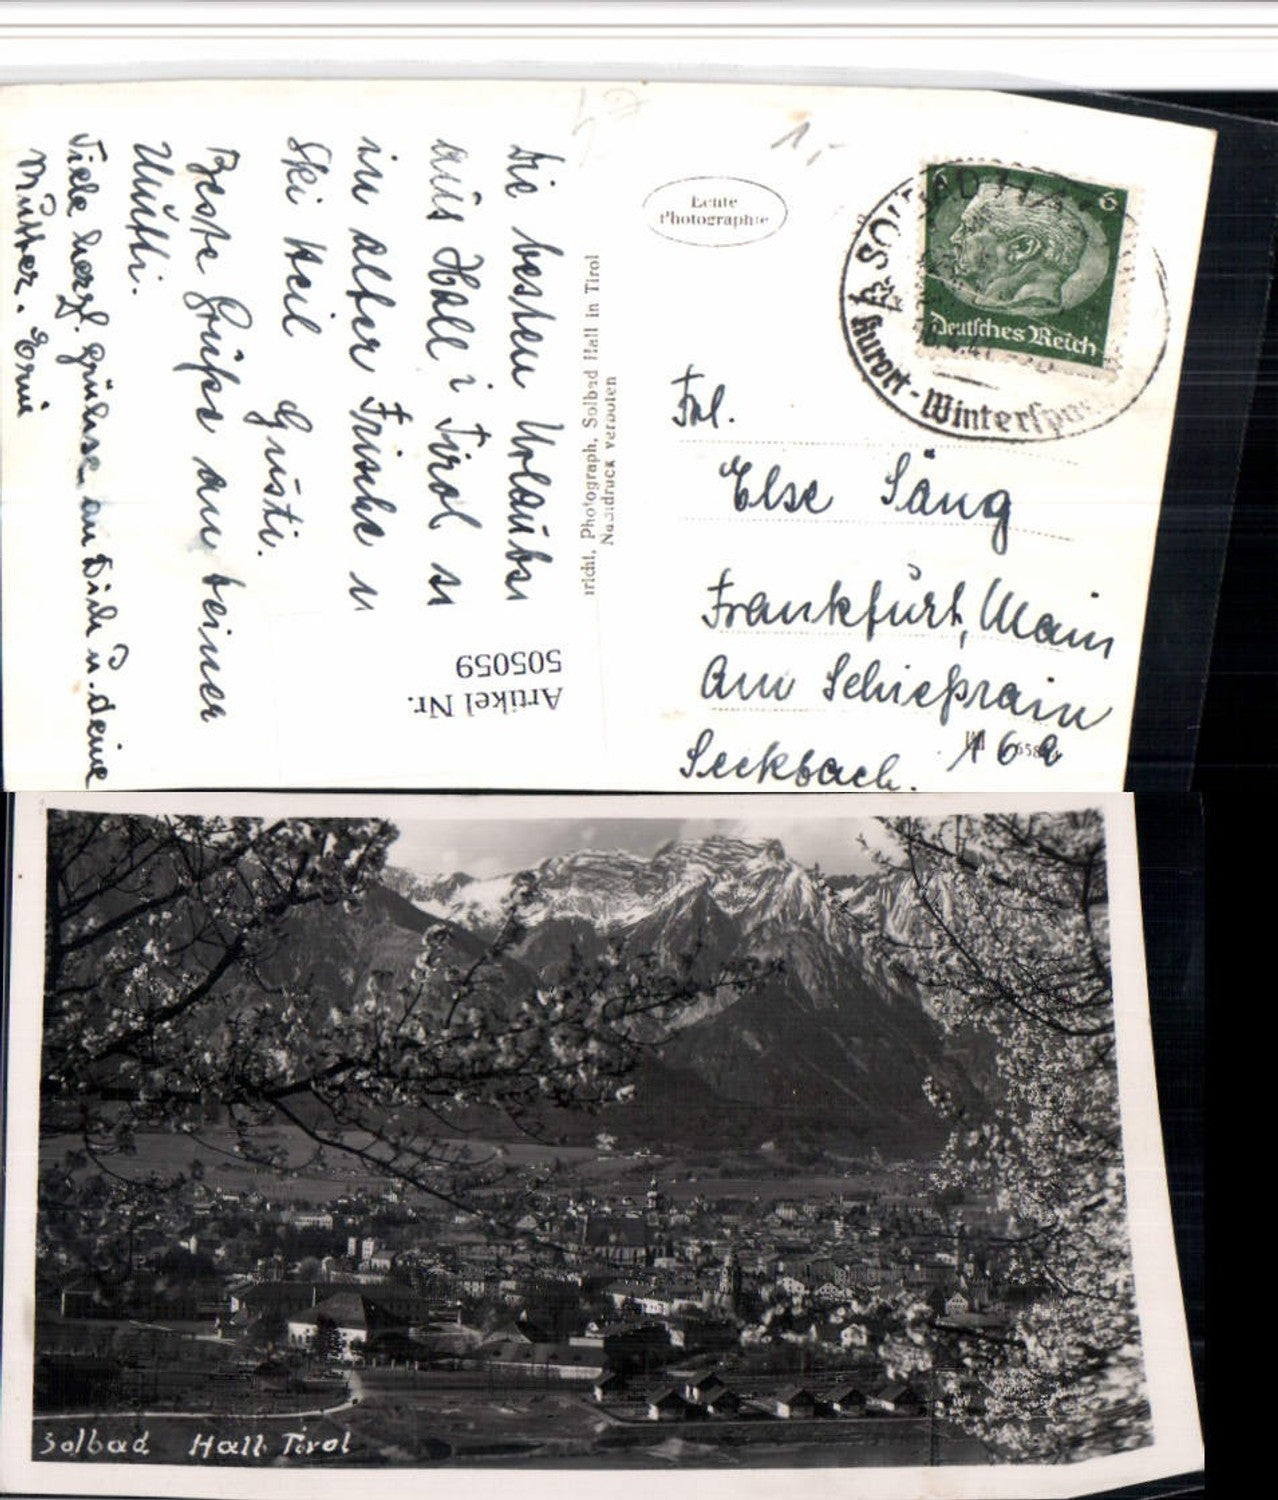 1,-
Echte
Photographie
SOLBAD HALL
Kurort - Winterspo
6 6
Deutsches Reich
Frl.
Else Säng
Frankfurt, Main
Am Schießrain
16
Seckbach.
richt, Photograph, Solbad Hall in Tirol
Nachdruck verboten
Die besten Urlaubs
aus Hall i Tirol u
in alter Frische u
Ski Heil Gusti.
Beste Grüße an Deiner
Mutti.
Viele herzl. Grüsse an Dich u. deine
Mutter. Erni
Artikel Nr.
505059
Solbad Hall Tirol